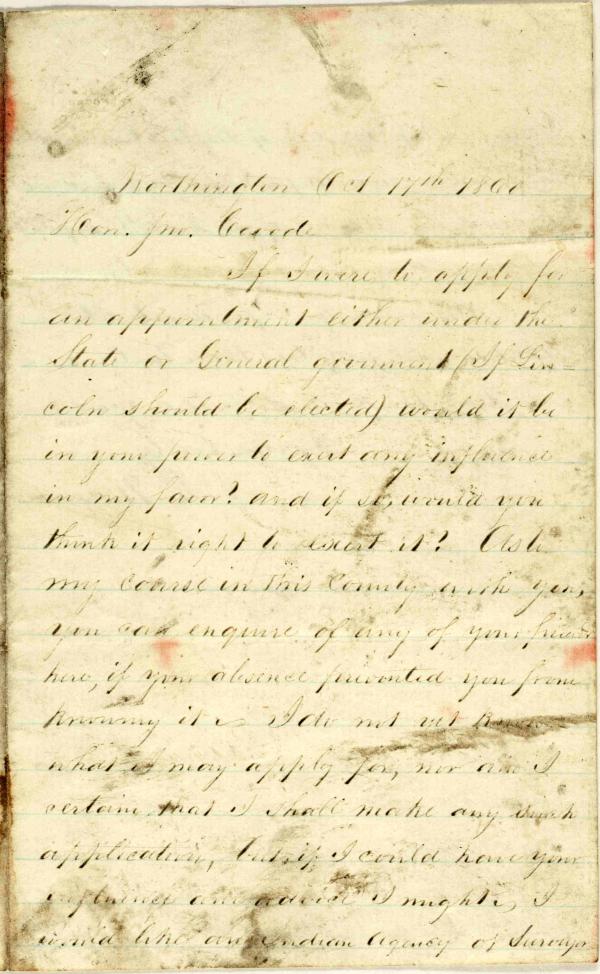 Worthington Oct 17th 1860
Hon. Jno. Covode
If I were to apply for
an appointment either under the
State or General goverment (If Lin-
coln should be elected) would it be
in your power to exert any influence
in my favor? and if so, would you
think it right to exert it? As to
my course in this County with you,
you can enquire of any of your friends
here, if your absence prevented you from
knowing it. I do not yet know
what I may apply for, nor am I
certain that I shall make any such
application, but if I could have your
influence and advice I might. I
would like an Indian Agency or Surveyor